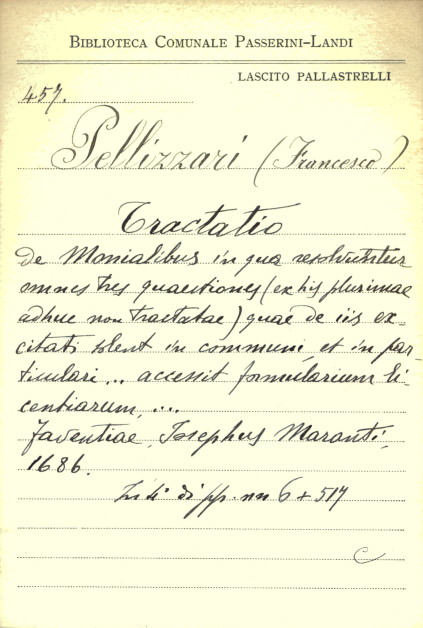 BIBLIOTECA COMUNALE PASSERINI-LANDI
LASCITO PALLASTRELLI
457.
Pellizzari (Francesco)
Tractatio
de Monialibus in qua resolvuntur
omnes tres quaestiones (ex his plurimae
adhuc non tractatae) quae de iis ex-
citati solent in communi, et in par-
ticulari... accessit formularium li-
centiarum....
Faventiae, Josephus Maranti,
1686.
In 4° di pp. nn 6 + 517
C